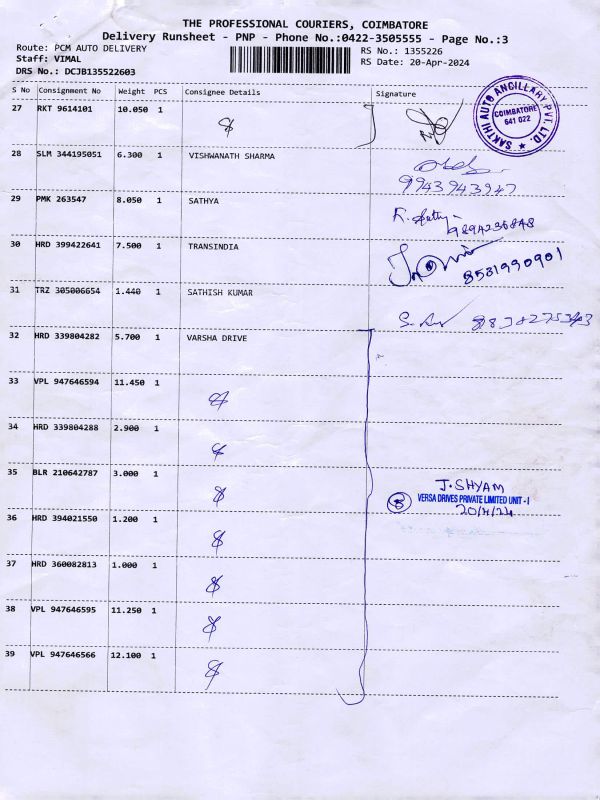 THE PROFESSIONAL COURIERS, COIMBATORE
Delivery Runsheet - PNP - Phone No.:0422-3505555 - Page No.:3
Route: PCM AUTO DELIVERY
Staff: VIMAL
DRS No.: DCJB135522603
RS No.: 1355226
RS Date: 20-Apr-2024
S No Consignment No Weight PCS Consignee Details Signature
27 RKT 9614101 10.050 1
SAKTHI AUTO ANCILLARY PVT. LTD. ★
COIMBATORE
641 022
28 SLM 344195051 6.300 1 VISHWANATH SHARMA
9943943947
29 PMK 263547 8.050 1 SATHYA
9894236848
30 HRD 399422641 7.500 1 TRANSINDIA
8531990901
31 TRZ 305006654 1.440 1 SATHISH KUMAR
32 HRD 339804282 5.700 1 VARSHA DRIVE
33 VPL 947646594 11.450 1
34 HRD 339804288 2.900 1
35 BLR 210642787 3.000 1
J. SHYAM
VERSA DRIVES PRIVATE LIMITED UNIT - I
20/4/24
36 HRD 394021550 1.200 1
37 HRD 360082813 1.000 1
38 VPL 947646595 11.250 1
39 VPL 947646566 12.100 1